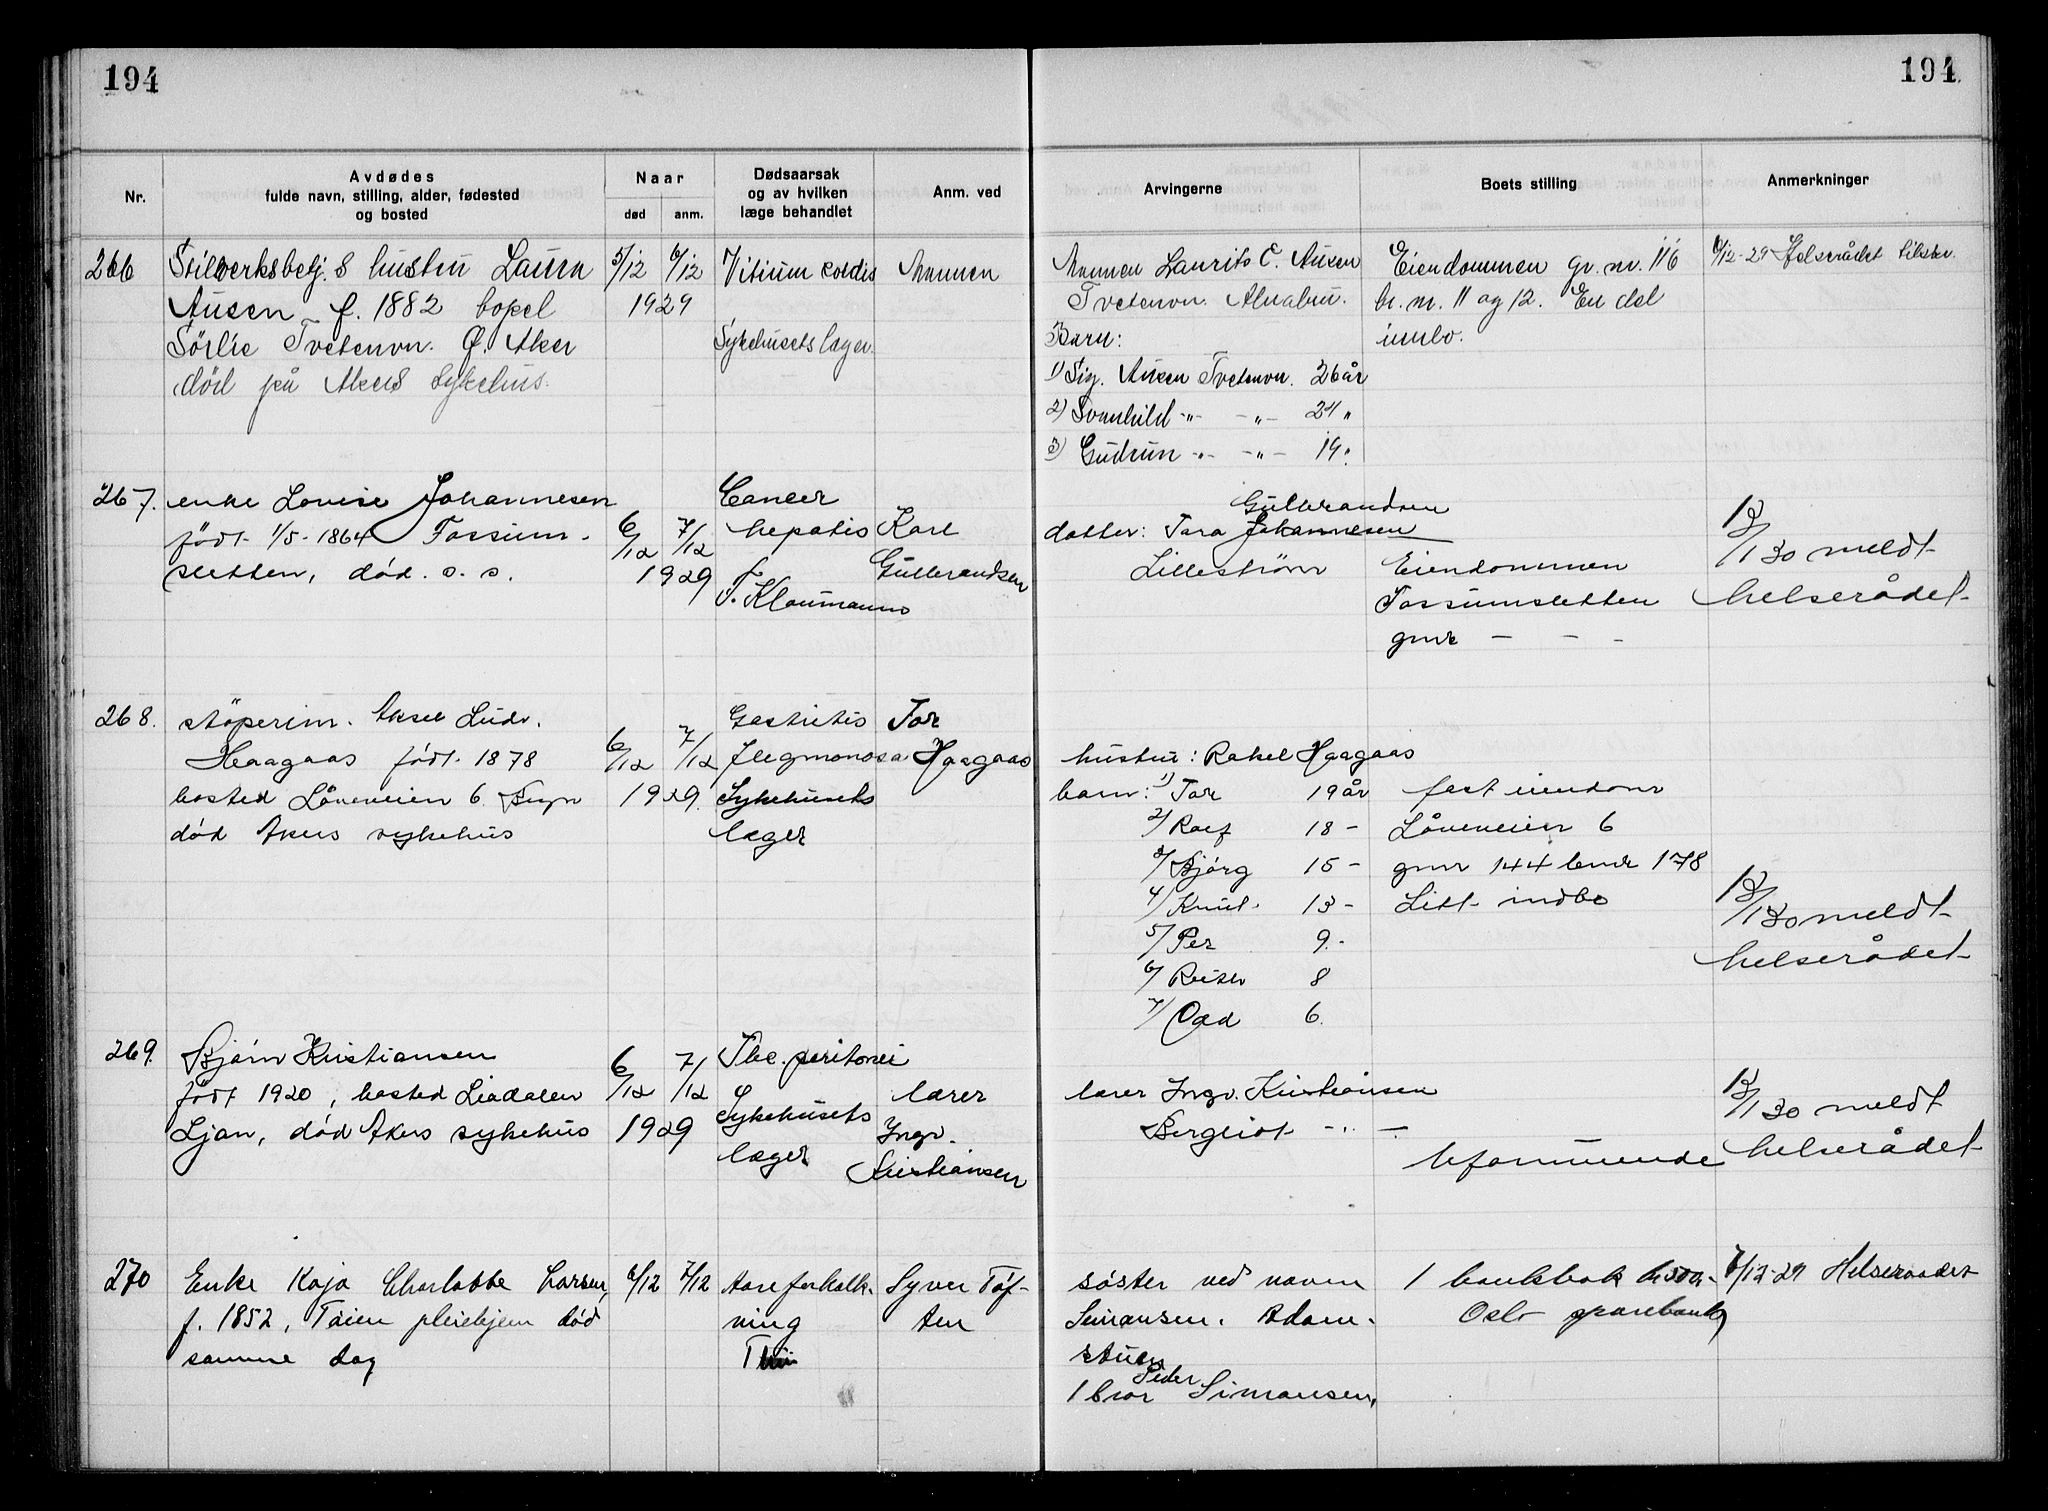 194
194
Nr.
Avdødes
fulde navn, stilling, alder, fødested
og bosted
Naar
død
anm.
Dødsaarsak
og av hvilken
læge behandlet
Anm. ved
Arvingerne
Boets stilling
Anmerkninger
266
hustru Laura
Ausen f. 1882 bopel
Sørlie Tvetenvn. Ø. Aker
død på Akers sykehus.
5/12 6/12
1929
Vitium cordis
Sykehusets læger.
Mannen
Mannen Laurits C. Ausen
Tvetenvn. Alnabru.
Barn:
1) Sig. Ausen Tvetenvn. 26 år
2) Svanhild -"- -"- 24 "
3) Gudrun -"- -"- 19 "
Eiendommen gr. nr. 116
br. nr. 11 og 12. En del
innbo.
6/12-29 Helserådet tilskr.
267.
enke Lovise Johannesen
født 1/5-1864 Fossum-
sletten, død. s. s.
6/12 7/12
1929
Cancer
hepatis
F. Klaumann
Karl
Gulbrandsen
Gulbrandsen
datter: Tora Johannesen
Lillestrøm
Eiendommen
Fossumsletten
gnr - - -
13/1 30 meldt
helserådet
268.
støperim. Aksel Ludv.
Haagaas født 1878
bosted Låveveien 6. Bryn
død Akers sykehus
6/12 7/12
1929.
Gastritis
flegmonosa
Sykehusets
læger
Tor
Haagaas
hustru: Rakel Haagaas
barn: 1) Tor 19 år
2/ Rolf 18 -
3/ Bjørg 15 -
4/ Knut 13 -
5/ Per 9. -
6/ Reidar 8
7/ Odd 6.
fast eiendom
Låveveien 6
gnr 144 bnr 178
Litt indbo
13/1 30 meldt
helserådet
269.
Bjørn Kristiansen
født 1920, bosted Liadalen
Ljan, død Akers sykehus
6/12 7/12
1929
Tbc. peritonei
Sykehusets
læger
lærer
Ingv.
Kristiansen
lærer Ingv. Kristiansen
Bergliot -"- -
Uformuende
13/1 30 meldt
helserådet
270
Enke Kaja Charlotte Larsen,
f. 1852, Tøien pleiehjem død
samme dag
6/12 7/12
Aareforkalk-
ning
Syver Tof-
ten
søster ved navn
Simonsen. Adam-
stuen
Peder
1 bror Simonsen,
1 bankbok
Oslo sparebank
7/12-29 Helseraadet